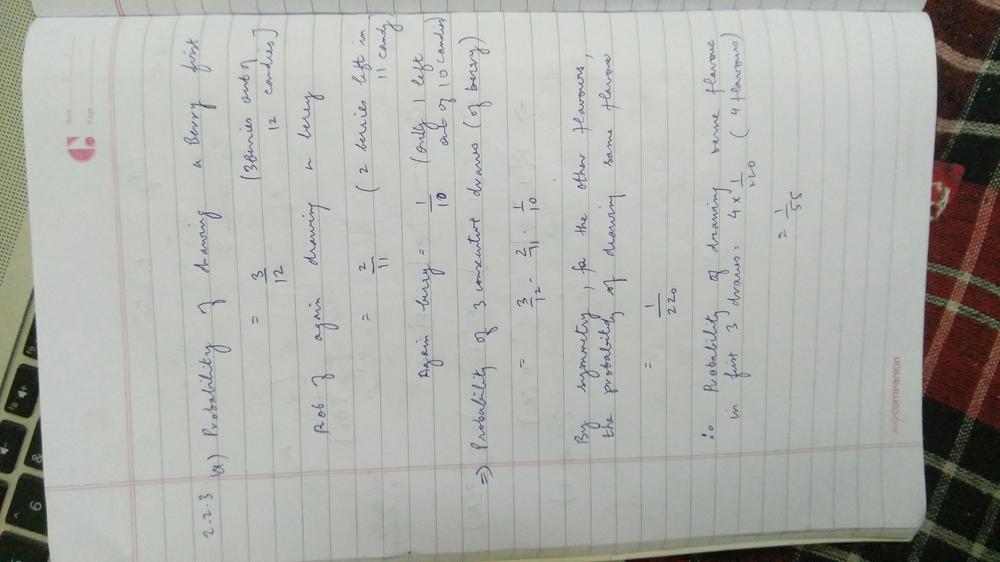 Date
Page
2.2.3
(a) Probability of drawing a Berry first
= 3/12 [3 berries out of 12 candies]
Prob. of again drawing a berry
= 2/11 (2 berries left in 11 candy)
Again berry = 1/10 (only 1 left out of 10 candies)
=) Probability of 3 consecutive draws (of berry)
= 3/12 . 2/11 . 1/10
By symmetry, for the other flavours,
the probability of drawing same flavour
= 1/220
∴ Probability of drawing same flavour
in first 3 draws = 4 × 1/220 (4 flavours)
= 1/55
mycompanion
6